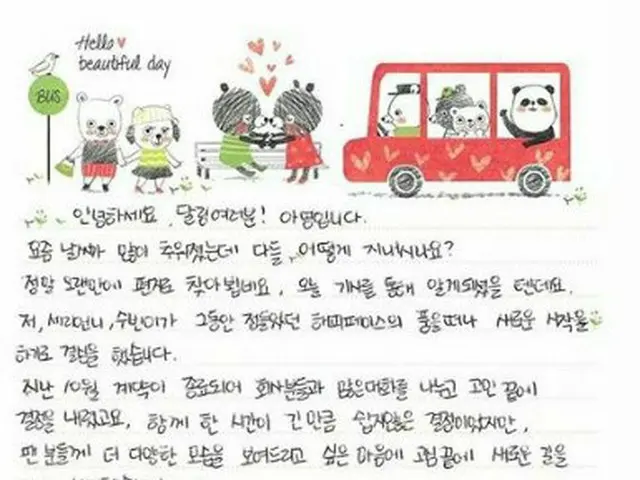 Hello
beautiful day
BUS
안녕하세요, 달링여러분! 아영입니다.
요즘 날씨가 많이 추워졌는데 다들 어떻게 지내시나요?
정말 오랜만에 편지로 찾아뵙네요, 오늘 기사를 통해 알게되셨을 텐데요.
저, 세리언니, 수빈이가 그동안 정들었던 해피페이스의 품을떠나 새로운 시작을
하기로 결정을 했습니다.
지난 10월 계약이 종료되어 회사분들과 많은대화를 나누고 고민 끝에
결정을 내렸고요, 함께 한 시간이 긴만큼 쉽지않은 결정이었지만,
팬 분들께 더 다양한 모습을 보여드리고 싶은 마음에 고심 끝에 새로운 길을